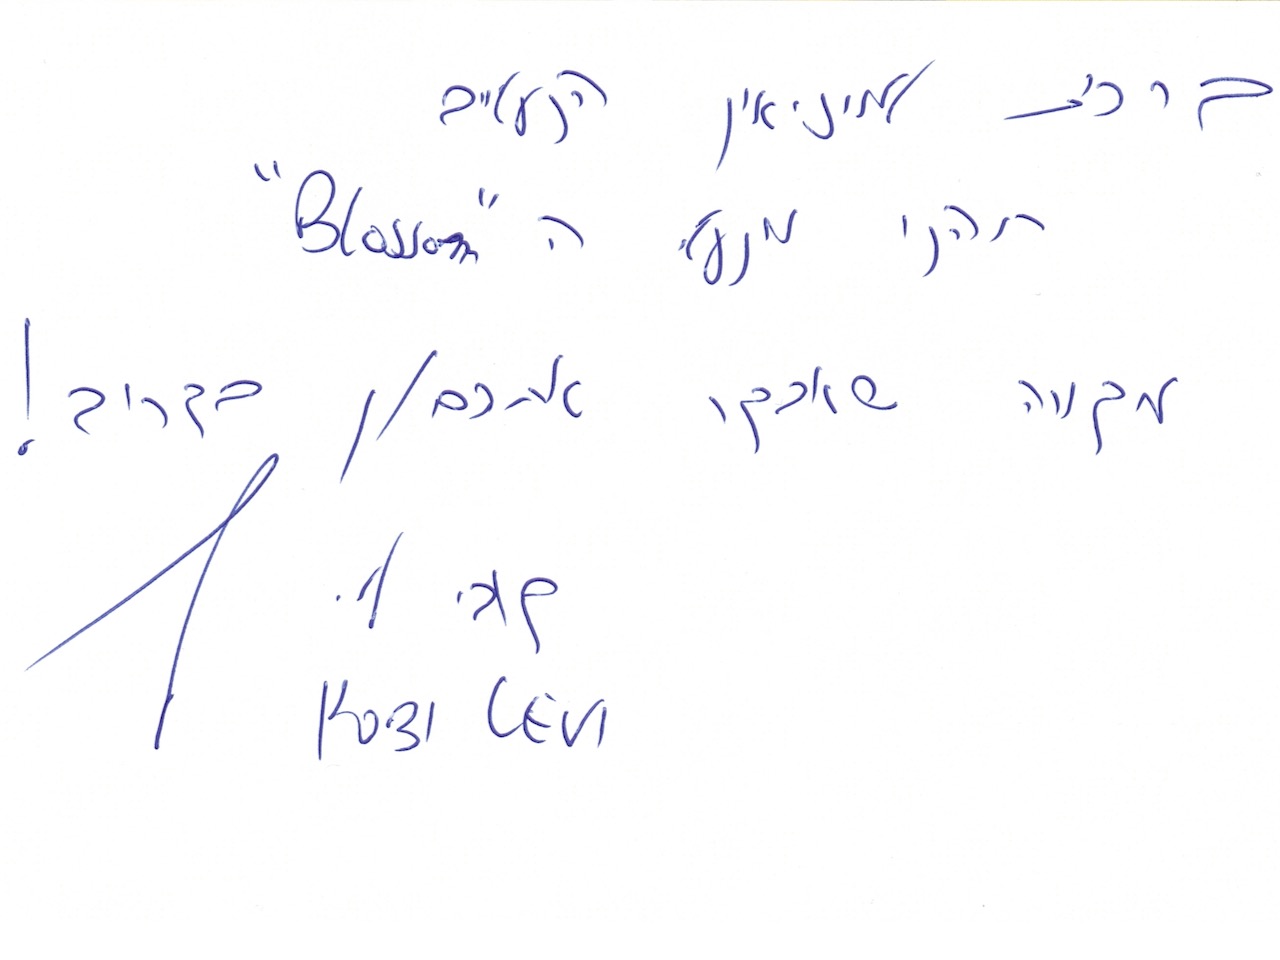 ברכות למוזיאון הנעליים
תהנו מנעלי ה "Blossom"
מקווה שאבקר אתכם/ן בקרוב!
קובי לוי
KOBI LEVI